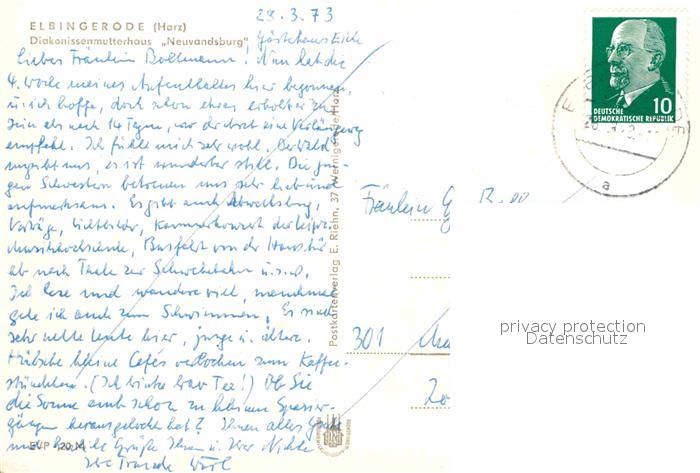 28.3.73
ELBINGERODE (Harz)
Diakonissenmutterhaus „Neuvandsburg"
Gästehaus Eiche
Liebes Fräulein Bollmann! Nun hat die
4. Woche meines Aufenthaltes hier begonnen,
u. ich hoffe, doch schon etwas erholter zu
sein als nach 14 Tagen, wo der Arzt eine Verlängerung
empfahl. Ich fühle mich sehr wohl. Der Wald
umgibt uns, es ist wunderbar still. Die jun-
gen Schwestern betreuen uns sehr lieb und
aufmerksam. Es gibt auch Abwechslung,
Vorträge, Lichtbilder, Kammerkonzert der
Musikhochschule, Busfahrt von der Haustür
ab nach Thale zur Schwebebahn u.s.w.
Ich lese und wandere viel, manchmal
gehe ich auch zum Schwimmen. Es sind
sehr nette Leute hier, junge u. ältere.
Hübsche kleine Cafés verlocken zum Kaffee-
stündchen. (Ich trinke brav Tee!) Ob Sie
die Sonne auch schon zu kleinen Spazier-
gängen herausgelockt hat? Ihnen alles Gute
und herzliche Grüße Ihnen u. Ihrer Nichte
Ihre
EVP 20 M
Postkartenverlag E. Riehn, 37 Wernigerode/Harz
10
DEUTSCHE
DEMOKRATISCHE REPUBLIK
a
Fräulein
301
privacy protection
Datenschutz